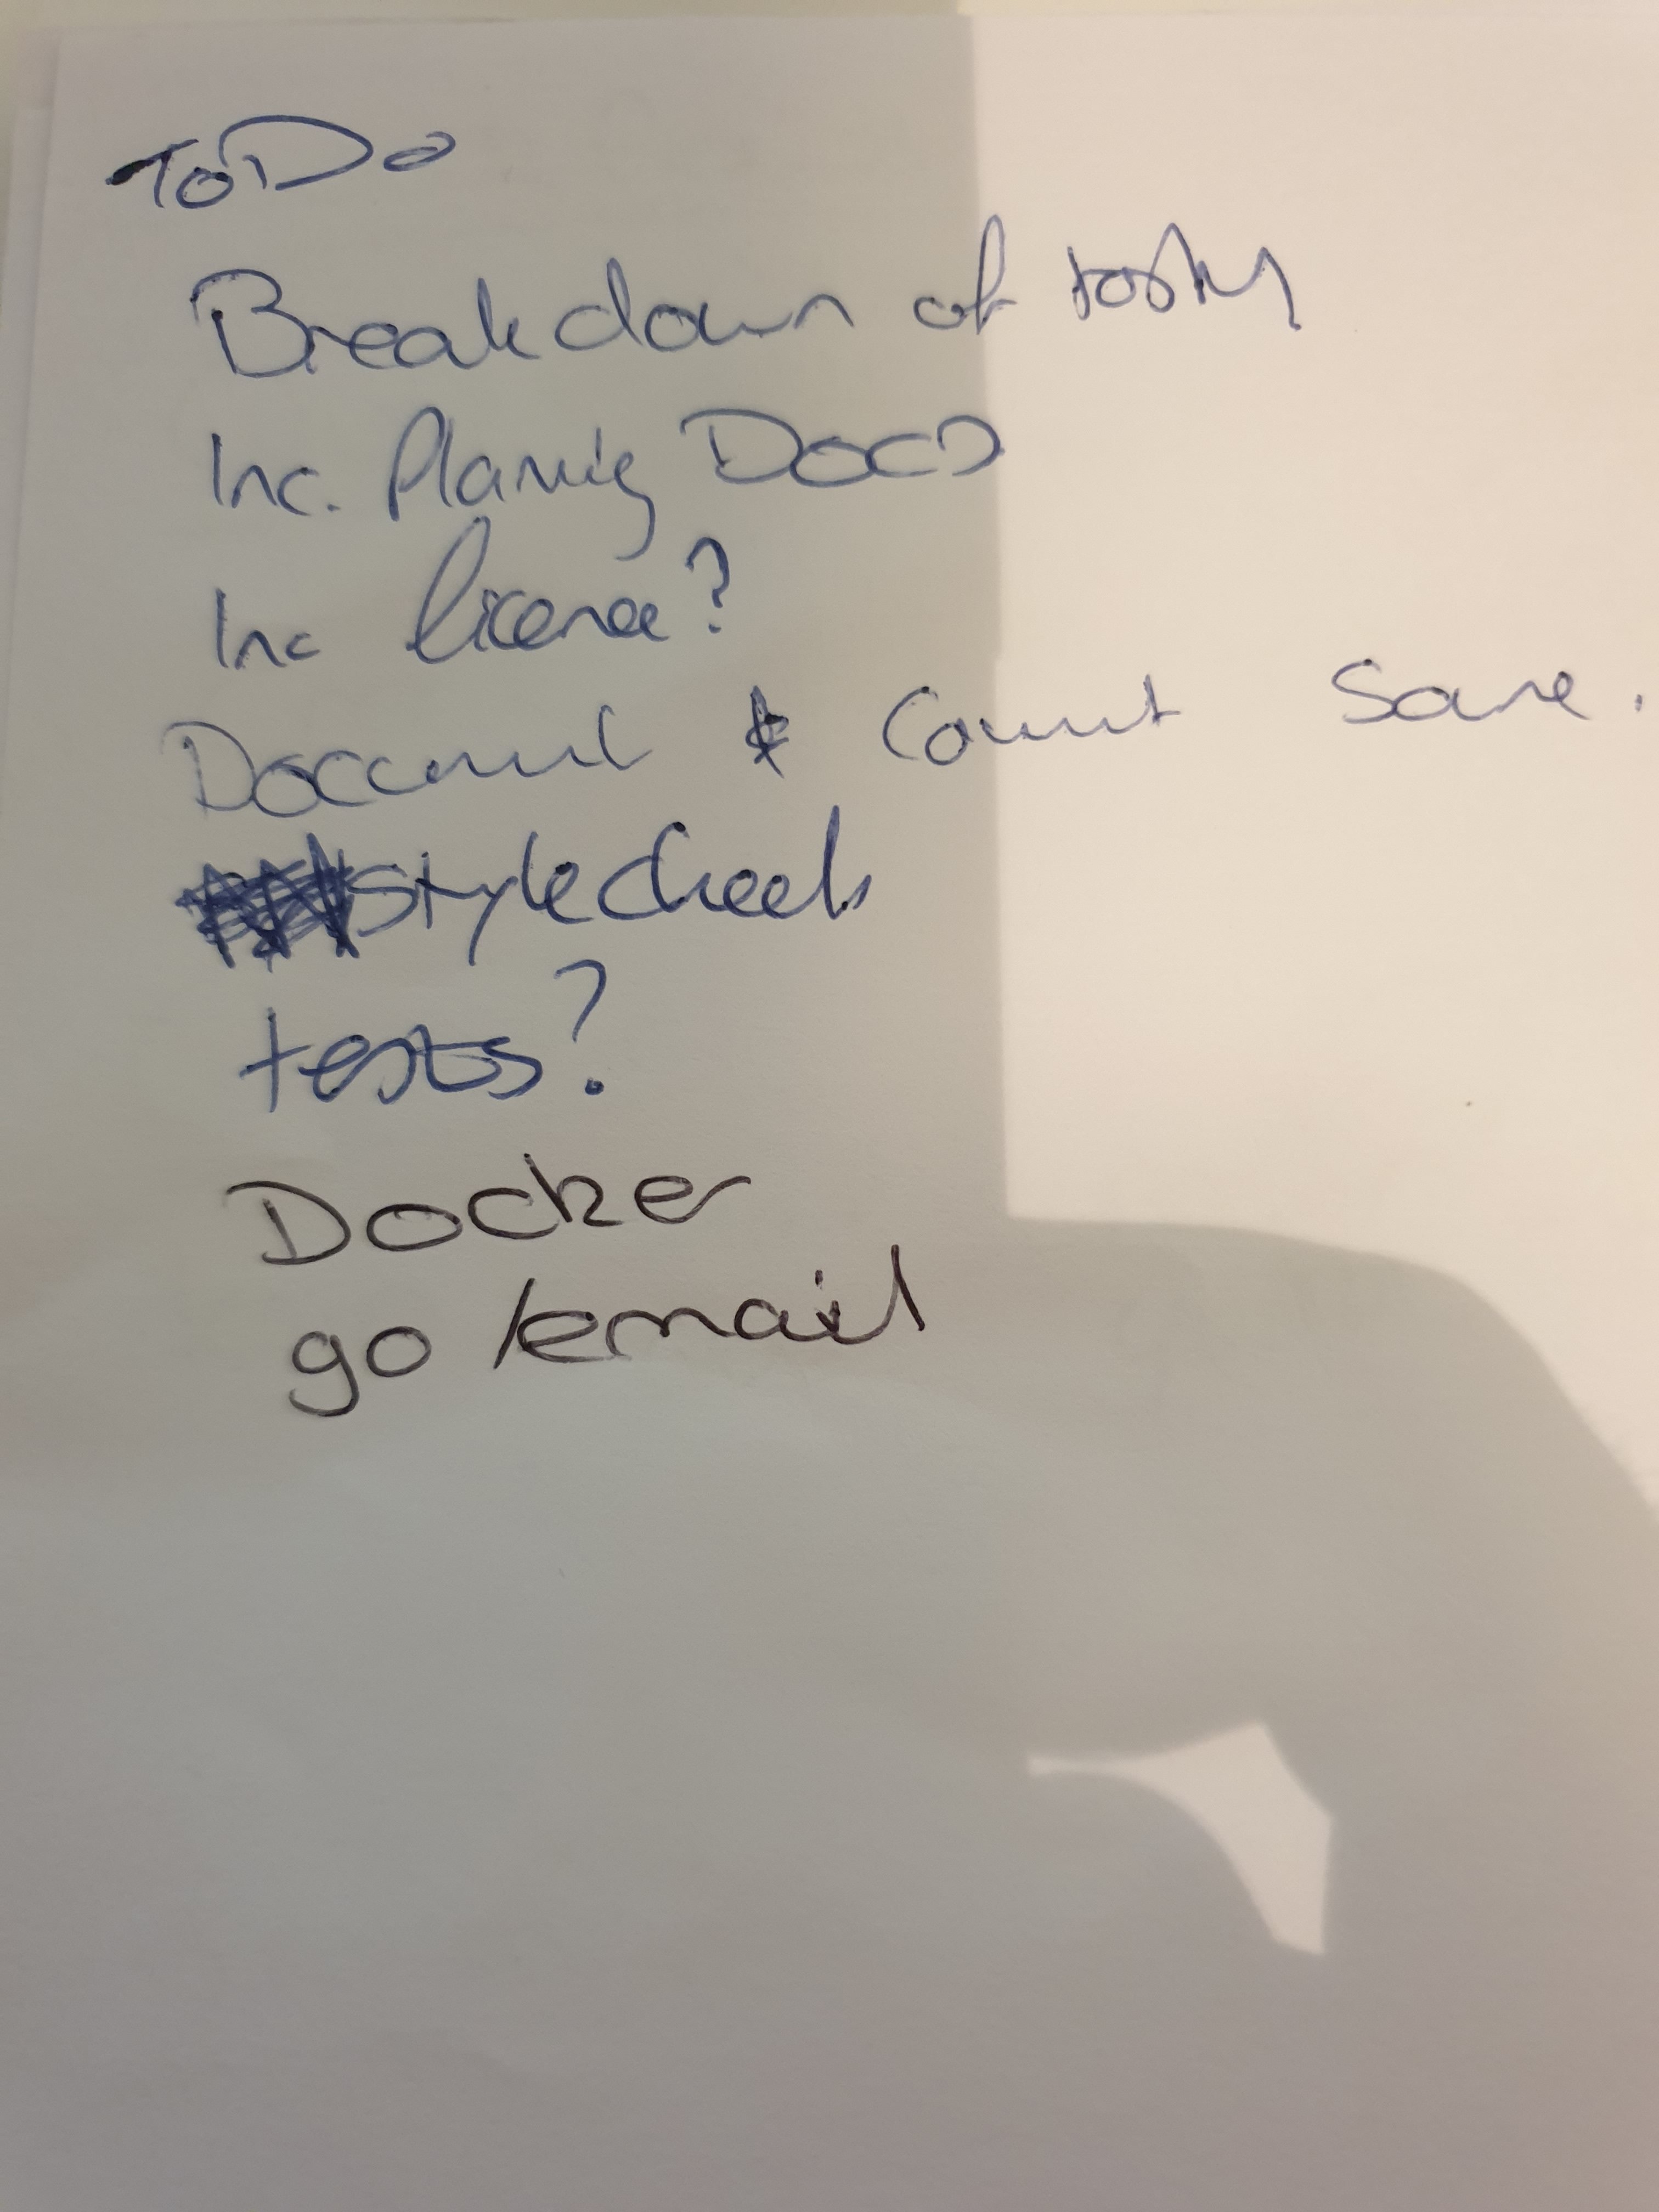 ToDo
Breakdown of
Inc. Planning Docs
Inc licence?
Document & Comment Same.
Style Check
tests?
Docker
go /email